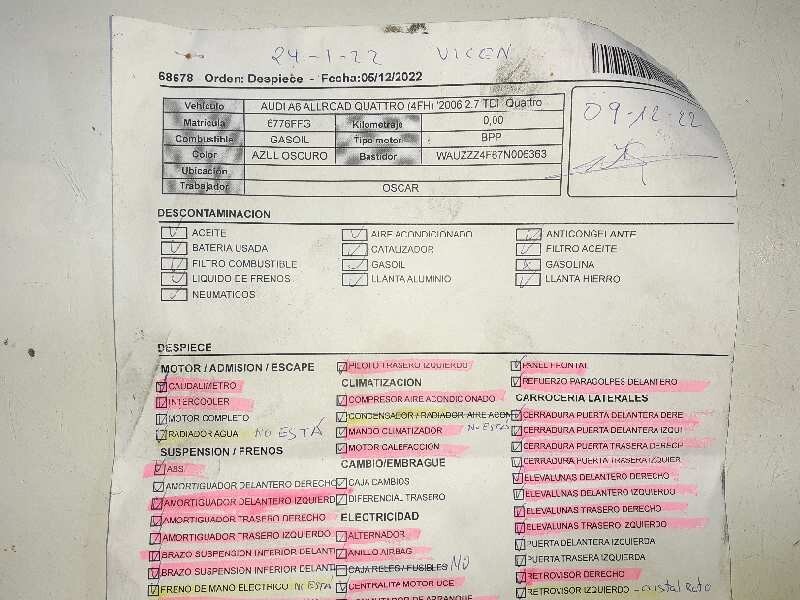 24-1-22 VICEN
68678 Orden: Despiece - Fecha:05/12/2022
Vehículo AUDI A6 ALLROAD QUATTRO (4FH) '2006 2.7 TDI Quattro
Matrícula 6776FFG Kilometraje 0,00
Combustible GASOIL Tipo motor BPP
Color AZUL OSCURO Bastidor WAUZZZ4F67N006363
Ubicación
Trabajador OSCAR
09-12-22
DESCONTAMINACION
ACEITE AIRE ACONDICIONADO ANTICONGELANTE
BATERIA USADA CATALIZADOR FILTRO ACEITE
FILTRO COMBUSTIBLE GASOIL GASOLINA
LIQUIDO DE FRENOS LLANTA ALUMINIO LLANTA HIERRO
NEUMATICOS
DESPIECE
MOTOR / ADMISION / ESCAPE
CAUDALIMETRO
INTERCOOLER
MOTOR COMPLETO
RADIADOR AGUA NO ESTÁ
SUSPENSION / FRENOS
ABS
AMORTIGUADOR DELANTERO DERECHO
AMORTIGUADOR DELANTERO IZQUIERD
AMORTIGUADOR TRASERO DERECHO
AMORTIGUADOR TRASERO IZQUIERDO
BRAZO SUSPENSION INFERIOR DELANTI
BRAZO SUSPENSION INFERIOR DELANTI
FRENO DE MANO ELECTRICO NO ESTÁ
PILOTO TRASERO IZQUIERDO
CLIMATIZACION
COMPRESOR AIRE ACONDICIONADO
CONDENSADOR / RADIADOR AIRE ACON
MANDO CLIMATIZADOR NO ESTÁ
MOTOR CALEFACCION
CAMBIO/EMBRAGUE
CAJA CAMBIOS
DIFERENCIAL TRASERO
ELECTRICIDAD
ALTERNADOR
ANILLO AIRBAG
CAJA RELES / FUSIBLES NO
CENTRALITA MOTOR UCE
CONMUTADOR DE ARRANQUE
PANEL FRONTAL
REFUERZO PARAGOLPES DELANTERO
CARROCERIA LATERALES
CERRADURA PUERTA DELANTERA DERE
CERRADURA PUERTA DELANTERA IZQUI
CERRADURA PUERTA TRASERA DERECH
CERRADURA PUERTA TRASERA IZQUIER
ELEVALUNAS DELANTERO DERECHO
ELEVALUNAS DELANTERO IZQUIERDO
ELEVALUNAS TRASERO DERECHO
ELEVALUNAS TRASERO IZQUIERDO
PUERTA DELANTERA IZQUIERDA
PUERTA TRASERA IZQUIERDA
RETROVISOR DERECHO
RETROVISOR IZQUIERDO - cristal roto